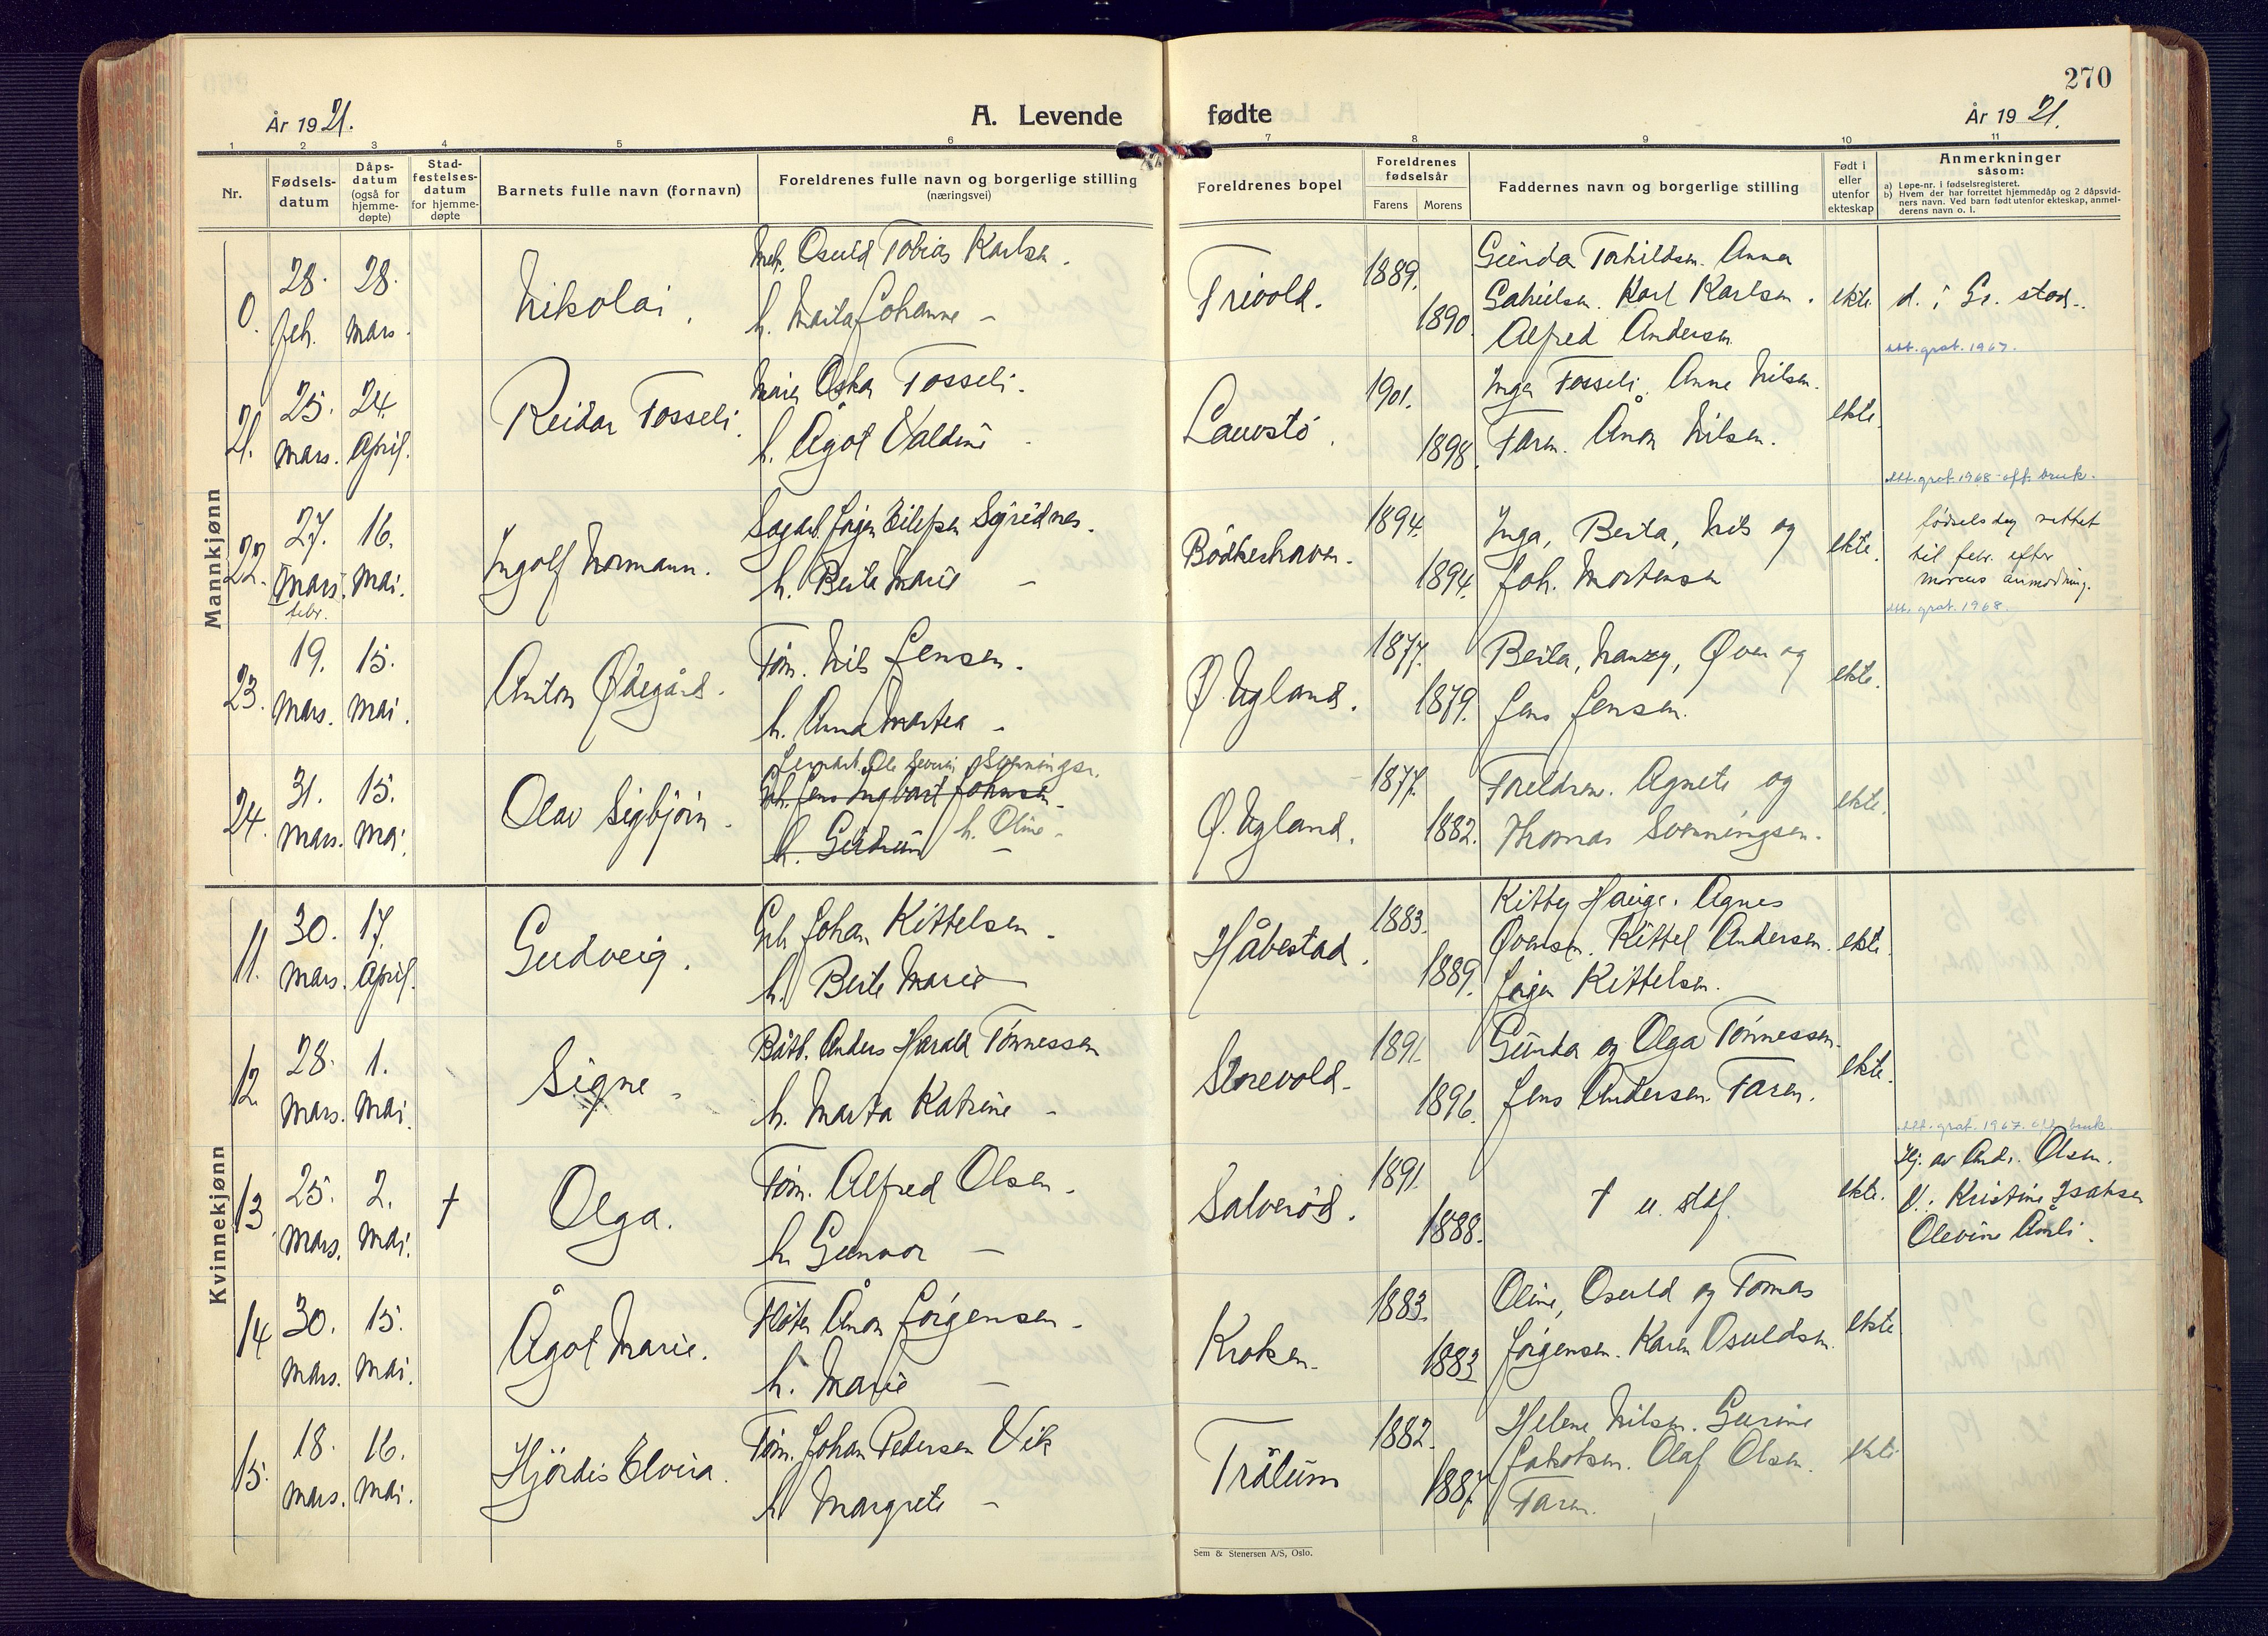 270
År 1921.
A. Levende fødte
År 1921.
1 2 3 4 5 6 7 8 9 10 11
Nr.
Fødsels-datum
Dåps-datum (også for hjemme-døpte)
Stad-festelses-datum for hjemme-døpte
Barnets fulle navn (fornavn)
Foreldrenes fulle navn og borgerlige stilling
(næringsvei)
Foreldrenes bopel
Foreldrenes fødselsår
Farens Morens
Faddernes navn og borgerlige stilling
Født i eller utenfor ekteskap
Anmerkninger
såsom:
a) Løpe-nr. i fødselsregisteret.
b) Hvem der har forrettet hjemmedåp og 2 dåpsvid-
ners navn. Ved barn født utenfor ekteskap, anmel-
derens navn o. l.
Mannkjønn
0. 28. feb. 28. mars. Nikolai.
Osuld Tobias Karlsen.
h. Marta Johanne –
Trivold. 1889. 1890.
Gunda Torkildsen. Anna
Karl Karlsen.
Alfred Andersen
ekte d. i Gr. stad.
att. grat. 1967.
21. 25. mars. 24. April. Reidar Fosseli.
Oskar Fosseli.
h. Ågot Valdine
Lauvstö. 1901. 1898.
Inga Fosseli. Anne Nilsen.
Faren. Ånon Nilsen.
ekte.
att. grat. 1968 off. bruk.
22. 27. mars. febr. 16. mai. Ingolf Normann.
Sagarb. Jørgen Eilefsen
h. Berte Marie –
1894. 1894.
Inga, Berta, Nils og
Joh. Mortensen
ekte.
fødselsdag rettet
til febr. efter
morens anmodning.
att. grat. 1968.
23. 19. mars. 15. mai. Anton Ødegård.
Töm. Nils Jensen.
h. Anna Martea –
Ø. Ugland. 1877. 1879.
Berta, Nanzy, Øven og
Jens Jensen.
ekte.
24. 31. mars. 15. mai. Olav Sigbjörn.
Ole Severin Svenningsen.
Jens Ingvart Johnsen.
h. Gudrun h. Oline –
Ø. Ugland. 1877. 1882.
Foreldrene. Agnete og
Thomas Svenningsen.
ekte.
Kvinnekjønn
11. 30. mars. 17. April. Gudveig.
Gbr. Johan Kittelsen.
h. Berte Marie –
Håbestad. 1883. 1889.
Kitty Hauge. Agnes
Øvensen. Kittel Andersen.
Jørgen Kittelsen.
ekte.
12. 28. mars. 1. mai. Signe.
Båtb. Anders Harald Tönnessen
h. Marta Katrine –
Storevold. 1891. 1896.
Gunda og Olga Tönnessen.
Jens Andersen. Faren.
ekte.
att. grat. 1967. off. bruk.
13. 25. mars. 2. mai. † Olga.
Töm. Alfred Olsen.
h. Gunvor –
Salveröd. 1891. 1888.
† u. staf.
ekte.
Hj. av Andr. Olsen.
V. Kristine Isaksen
Olevine Åmli.
14. 30. mars. 15. mai. Ågot Marie.
Flöter Ånon Jörgensen.
h. Marie –
Kroken. 1883. 1883.
Oline, Osuld og Tomas
Jörgensen. Karen Osuldsen.
ekte
15. 18. mars. 16. mai. Hjördis Elvira.
Töm. Johan Pedersen Vik
h. Margrete –
Trålum 1882. 1887.
Helene Nilsen. Gurine
Jakobsen. Olaf Olsen.
Faren.
ekte
Sem & Stenersen A/S, Oslo.